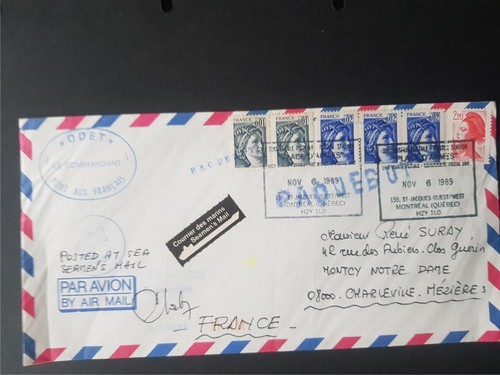 ODET
LE COMMANDANT
PORT AUX FRANÇAIS
FRANCE 0,01
FRANCE 0,01
FRANCE
FRANCE
FRANCE
2,20
PAQUEBOT
PAQUEBOT
NOV 6 1989
155, ST-JACQUES OUEST/WEST
MONTRÉAL (QUÉBEC)
H2Y 1L0
NOV 6 1989
155, ST-JACQUES OUEST/WEST
MONTRÉAL (QUÉBEC)
H2Y 1L0
Courrier des marins
Seamen's Mail
POSTED AT SEA
SEAMEN'S MAIL
PAR AVION
BY AIR MAIL
Monsieur René SURAY
42 rue des Aubiers. Clos Guérin
MONTCY NOTRE DAME
08000. CHARLEVILLE. MÉZIÈRES
FRANCE